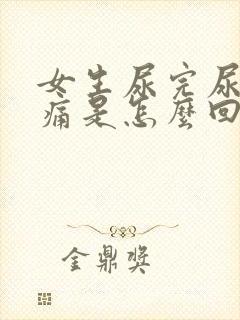 女生尿完尿
痛是怎麼回
金鼎獎